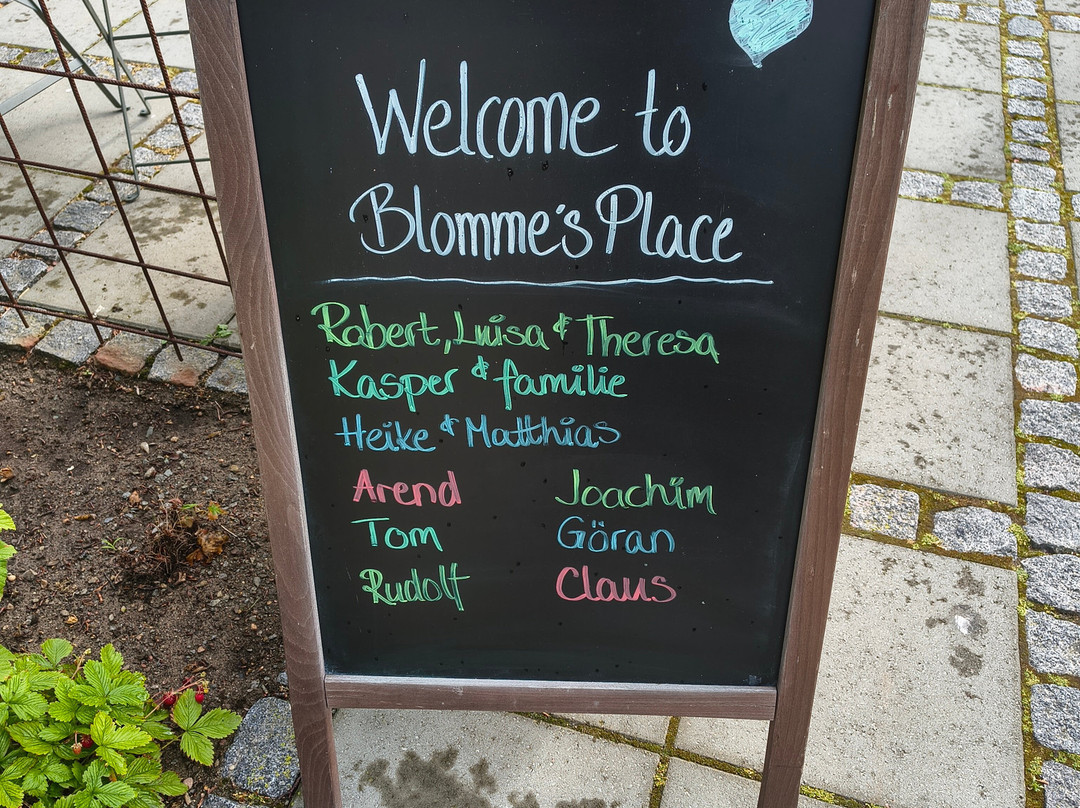 Welcome to
Blomme's Place
Robert, Luisa & Theresa
Kasper & familie
Heike & Matthias
Arend Joachim
Tom Göran
Rudolf Claus